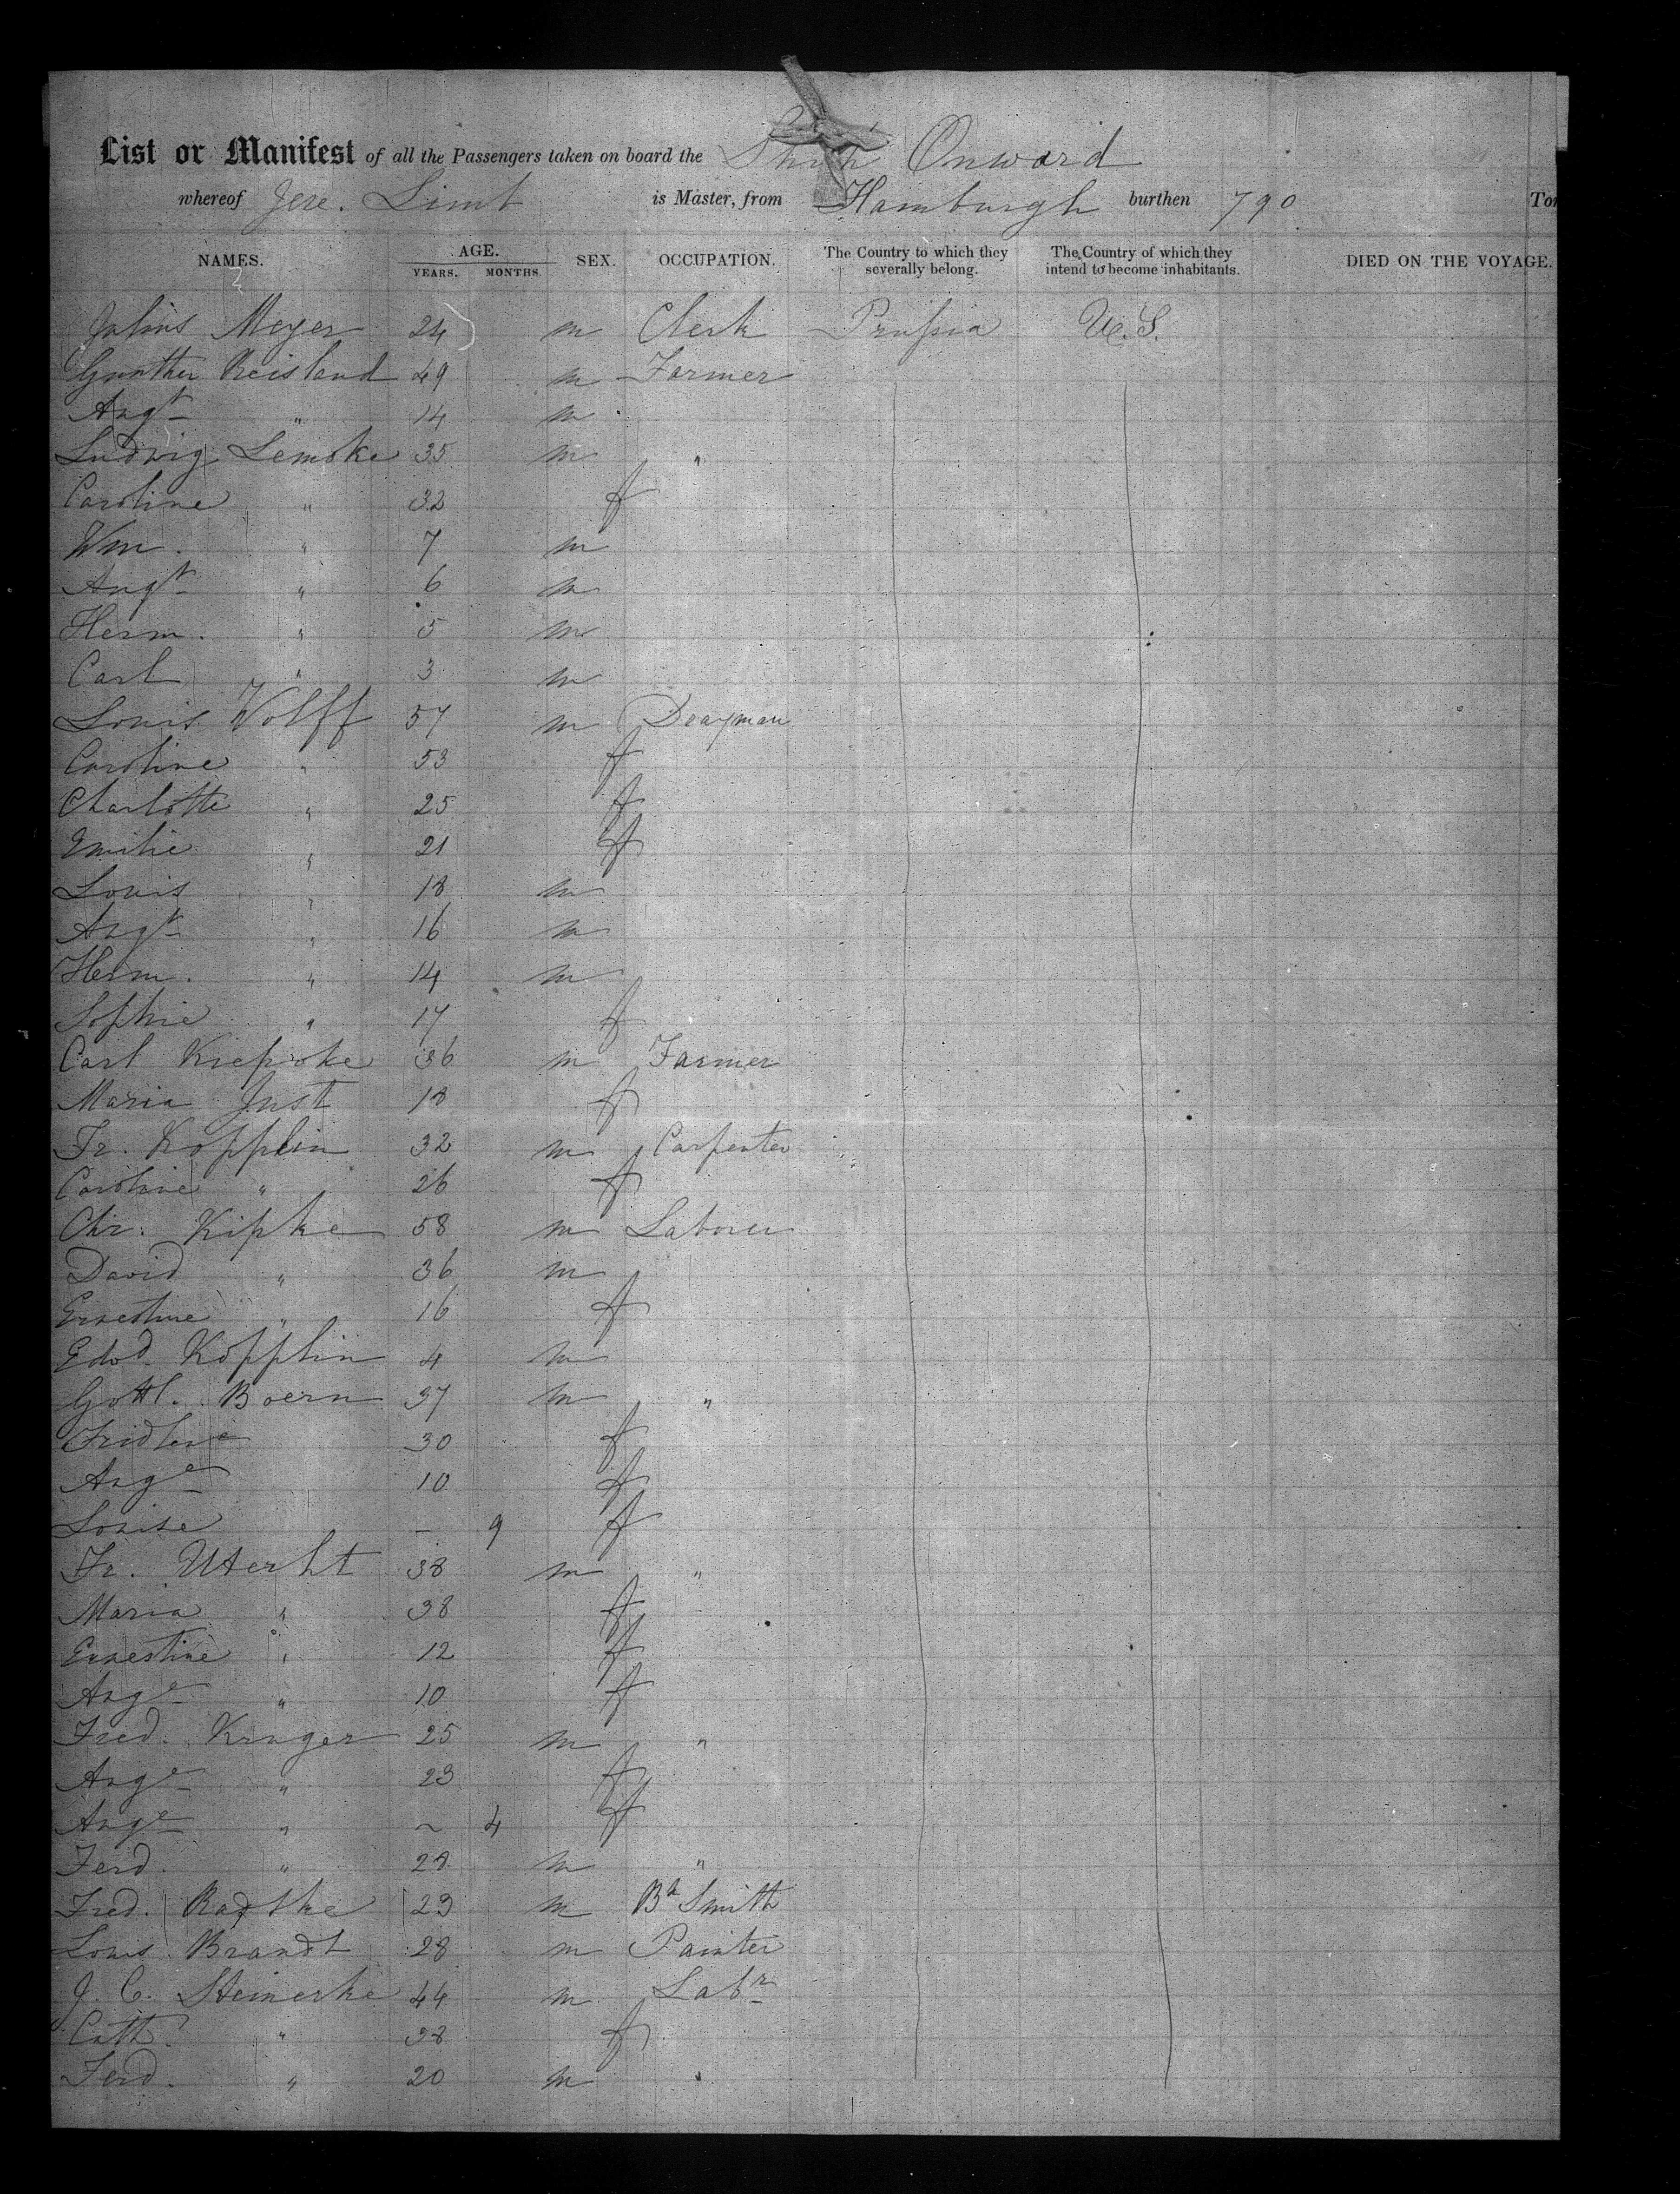 List or Manifest of all the Passengers taken on board the Ship Onward
whereof Jere. Limt is Master, from Hamburgh burthen 790 Ton
NAMES. AGE. YEARS. MONTHS. SEX. OCCUPATION. The Country to which they severally belong. The Country of which they intend to become inhabitants. DIED ON THE VOYAGE.
Julius Meyer 24 m Clerk Prussia U.S.
Gunther Reisland 49 m Farmer
Augt " 14 m
Ludwig Lemske 35 m "
Caroline " 32 f
Wm. " 7 m
Augt " 6 m
Herm. " 5 m
Carl " 3 m
Louis Wolff 57 m Drayman
Caroline " 53 f
Charlotte " 25 f
Emilie " 21 f
Louis " 18 m
Augt " 16 m
Herm. " 14 m
Sophie " 17 f
Carl 36 m Farmer
Maria Just 18 f
Fr. Kopplin 32 m Carpenter
Caroline " 26 f
Chr. Kipke 58 m Laborer
David " 36 m
Ernestine " 16 f
Edwd. Kopplin 4 m
Gottl. Boern 37 m "
30 f
Auge 10 f
Louise – 9 f
Fr. Utecht 38 m "
Maria " 38 f
Ernestine " 12 f
Auge " 10 f
Fred. Kruger 25 m "
Auge " 23 f
Auge " ~ 4 f
Ferd. " 28 m "
Fred. Radtke 23 m Bk Smith
Louis Brandt 28 m Painter
J. C. Steinerke 44 m Labr
Cath. " 38 f
Ferd. " 20 m "